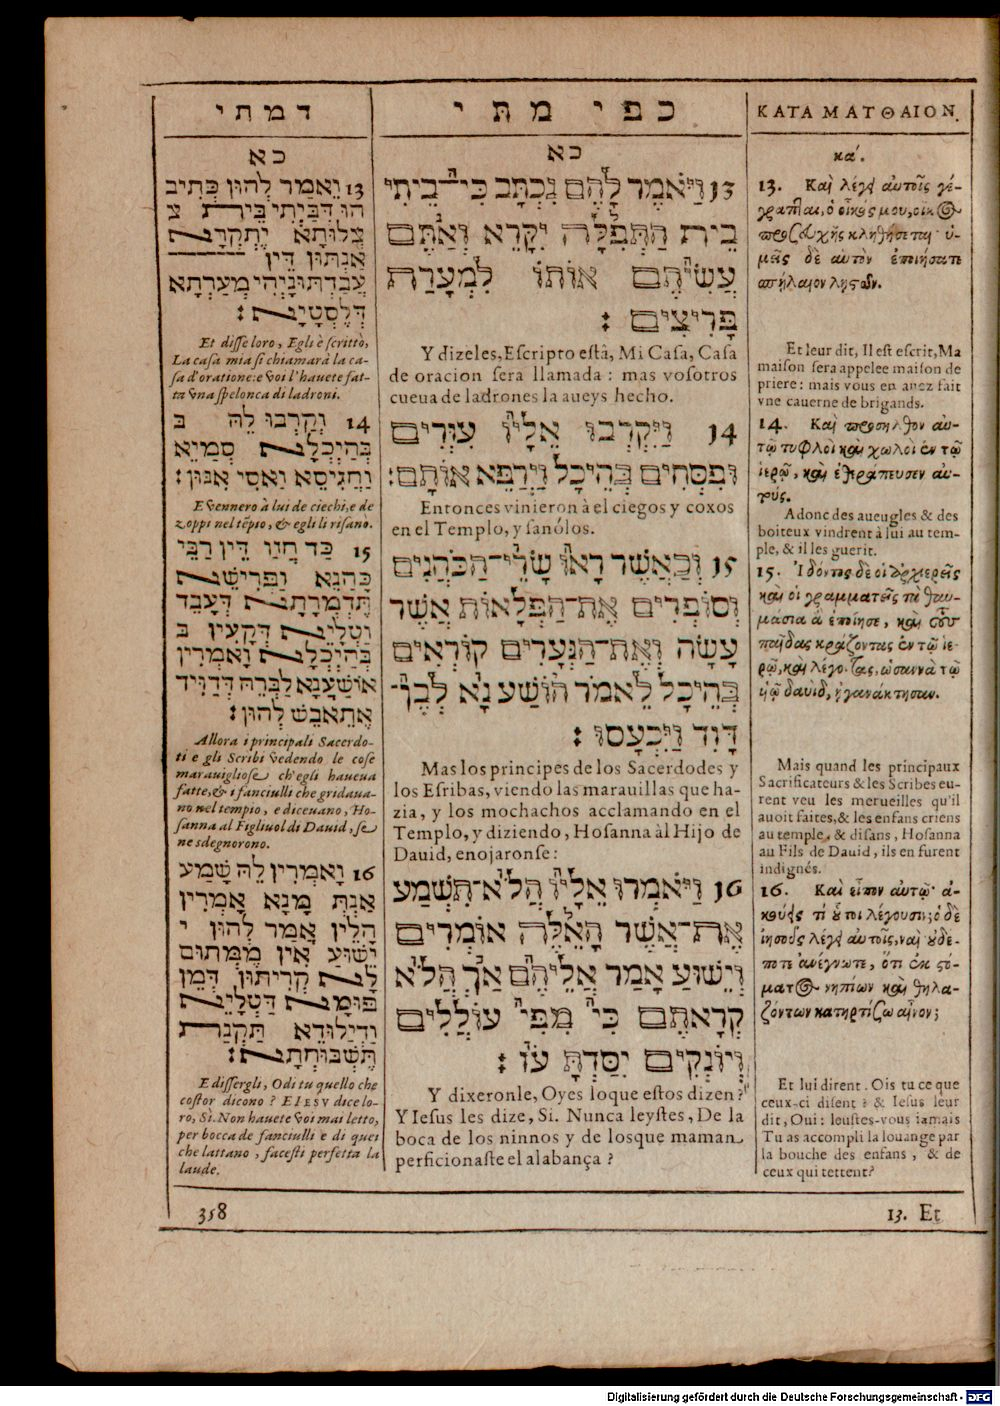 דמתי
כא
13 וֶאמַר לְהוּן כְּתִיב
הוּ דְּבַיְתִי בֵּית צ
צְלוּתָא יֶתְקְרֵא
אַנְתּוּן דֵּין
עֲבַדְתּוּנָיְהִי מְעַרְתָא
דְּלֶסְטָיֵא׃
Et disse loro, Egli è scritto,
La casa mia si chiamarà la ca-
sa d'oratione: e voi l'hauete fat-
ta vna spelonca di ladroni.
14 וְקַרְבוּ לֵהּ ב
בְּהַיְכְּלָא סְמַיֵא
וַחֲגִיסֵא וַאסִי אֵנּוּן׃
E vennero à lui de ciechi, e de
zoppi nel tēpio, & egli li risanò.
15 כַּד חֲזַו דֵּין רַבַּי
כָּהְנֵא וַפְרִישֵׁא
תֶּדְמְרָתָא דְּעָבֵד
וַטְלָיֵא דְּקָעֵין ב
בְּהַיְכְּלָא וְאָמְרִין
אוֹשַׁעְנָא לַבְרֵהּ דְּדָוִיד
אֶתֶאבֶשׁ לְהוּן׃
Allora i principali Sacerdo-
ti e gli Scribi vedendo le cose
marauigliose ch'egli haueua
fatte, & i fanciulli che gridaua-
no nel tempio, e diceuano, Ho-
sanna al Figliuol di Dauid, se
ne sdegnorono.
16 וָאמְרִין לֵהּ שָׁמַע
אַנְתְּ מָנָא אָמְרִין
הָלֵין אֲמַר לְהוּן י
יֵשׁוּעַ אִין מֶמְּתוּם
לָא קְרֵיתּוּן דְּמֵן
פּוּמָא דַּטְלָיֵא
וַדְיַלּוּדֵא תַּקֶּנְתּ
תֶּשְׁבּוּחְתָּא׃
E dissergli, Odi tu quello che
costor dicono? E IESV dice lo-
ro, Sì. Non hauete voi mai letto,
per bocca de fanciulli e di quei
che lattano, facesti perfetta la
laude.
358
כפי מתי
כא
13 וַיֹּאמֶר לָהֶם נִכְתָּב כִּי־בֵיתִי
בֵּית הַתְּפִלָּה יִקָּרֵא וְאַתֶּם
עֲשִׂיתֶם אוֹתוֹ לִמְעָרַת
פָּרִיצִים׃
Y dizeles, Escripto està, Mi Casa, Casa
de oracion sera llamada: mas vosotros
cueua de ladrones la aueys hecho.
14 וַיִּקְרְבוּ אֵלָיו עִוְּרִים
וּפִסְּחִים בְּהֵיכָל וַיְרַפֵּא אוֹתָם׃
Entonces vinieron à el ciegos y coxos
en el Templo, y sanólos.
15 וְכַאֲשֶׁר רָאוּ שָׂרֵי־הַכֹּהֲנִים
וְסוֹפְרִים אֶת־הַפְּלָאוֹת אֲשֶׁר
עָשָׂה וְאֶת־הַנְּעָרִים קוֹרְאִים
בְּהֵיכָל לֵאמֹר הוֹשַׁע נָא לְבֶן־
דָּוִד וַיִּכְעָסוּ׃
Mas los principes de los Sacerdodes y
los Esribas, viendo las marauillas que ha-
zia, y los mochachos acclamando en el
Templo, y diziendo, Hosanna àl Hijo de
Dauid, enojaronse:
16 וַיֹּאמְרוּ אֵלָיו הֲלֹא־תִשְׁמַע
אֶת־אֲשֶׁר הָאֵלֶּה אוֹמְרִים
וְיֵשׁוּעַ אָמַר אֲלֵיהֶם אַךְ הֲלֹא
קְרָאתֶם כִּי מִפִּי עוֹלֲלִים
וְיוֹנְקִים יִסַּדְתָּ עֹז׃
Y dixeronle, Oyes lo que estos dizen?
Y Iesus les dize, Si. Nunca leystes, De la
boca de los ninnos y de los que maman
perficionaste el alabança?
ΚΑΤΑ ΜΑΤΘΑΙΟΝ.
κα΄.
13. Καὶ λέγει αὐτοῖς γέ-
γραπται, ὁ οἶκός μου, οἶκος
προσευχῆς κληθήσεται· ὑ-
μεῖς δὲ αὐτὸν ἐποιήσατε
σπήλαιον λῃστῶν.
Et leur dit, Il est escrit, Ma
maison sera appelee maison de
priere: mais vous en auez fait
vne cauerne de brigands.
14. Καὶ προσῆλθον αὐ-
τῷ τυφλοὶ καὶ χωλοὶ ἐν τῷ
ἱερῷ, καὶ ἐθεράπευσεν αὐ-
τούς.
Adonc des aueugles & des
boiteux vindrent à lui au tem-
ple, & il les guerit.
15. Ἰδόντες δὲ οἱ ἀρχιερεῖς
καὶ οἱ γραμματεῖς τὰ θαυ-
μάσια ἃ ἐποίησε, καὶ τοὺς
παῖδας κράζοντας ἐν τῷ ἱε-
ρῷ, καὶ λέγοντας, ὡσαννὰ τῷ
υἱῷ δαυὶδ, ἠγανάκτησαν.
Mais quand les principaux
Sacrificateurs & les Scribes eu-
rent veu les merueilles qu'il
auoit faites, & les enfans criens
au temple, & disans, Hosanna
au Fils de Dauid, ils en furent
indignés.
16. Καὶ εἶπον αὐτῷ· ἀ-
κούεις τί οὗτοι λέγουσιν; ὁ δὲ
ἰησοῦς λέγει αὐτοῖς, ναὶ οὐδέ-
ποτε ἀνέγνωτε, ὅτι ἐκ στό-
ματος νηπίων καὶ θηλα-
ζόντων κατηρτίσω αἶνον;
Et lui dirent. Ois tu ce que
ceux-ci disent? & Iesus leur
dit, Oui: leustes-vous iamais
Tu as accompli la louange par
la bouche des enfans, & de
ceux qui tettent?
13. Et
Digitalisierung gefördert durch die Deutsche Forschungsgemeinschaft - DFG